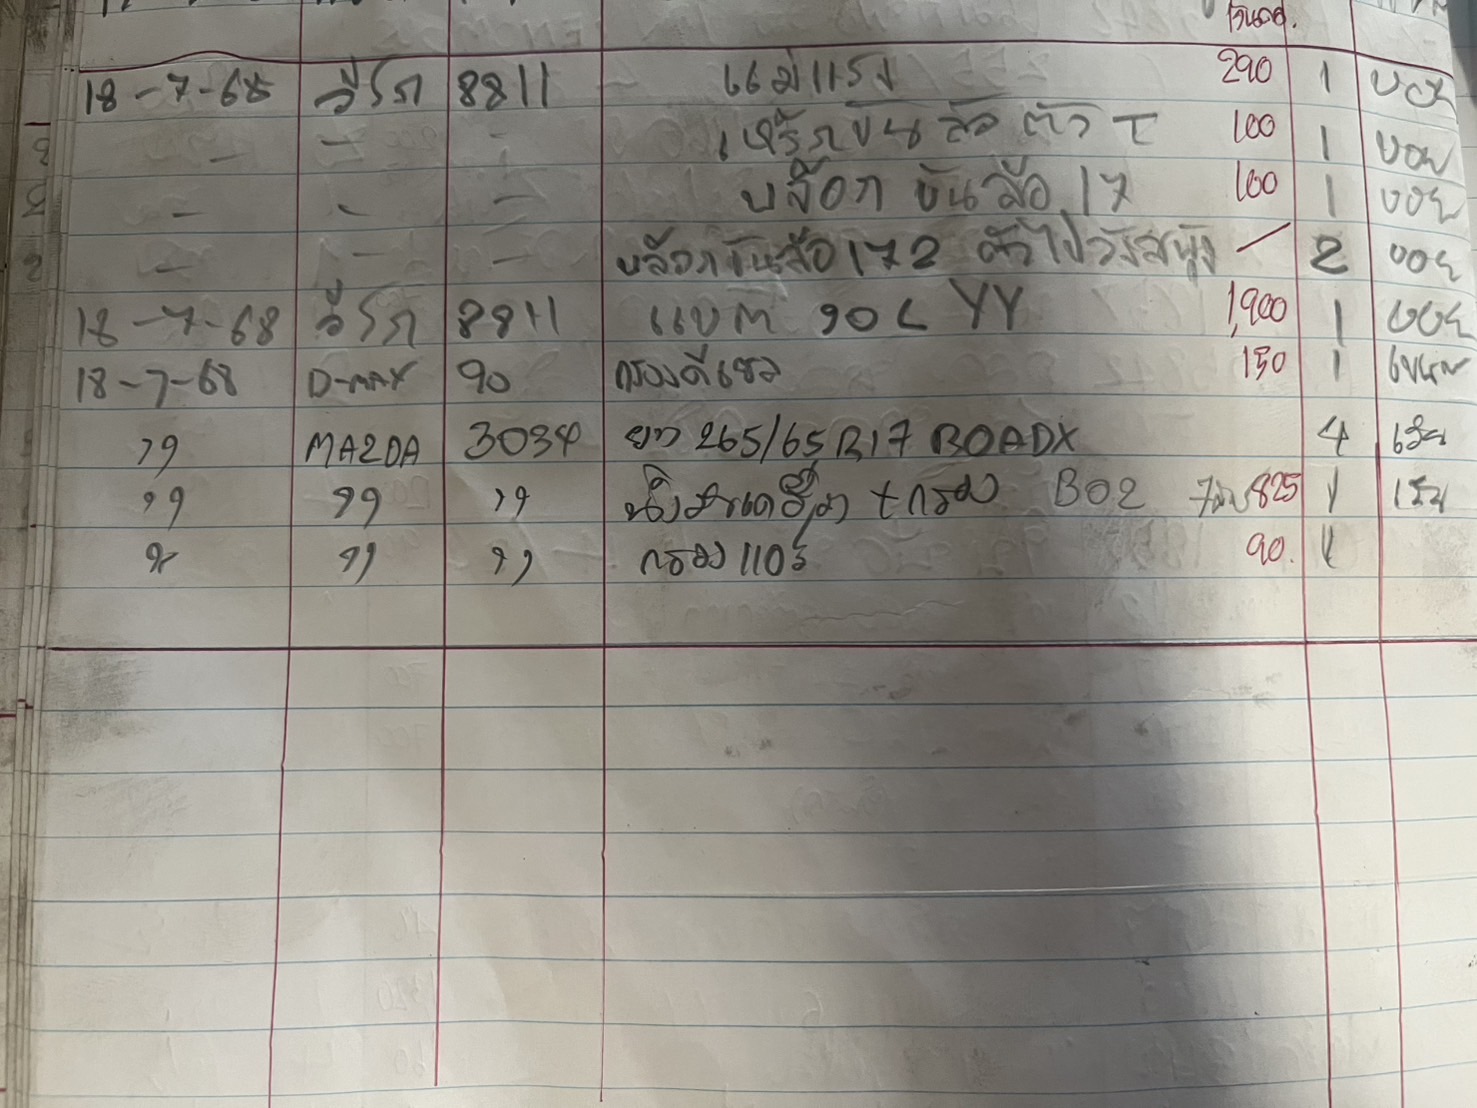 18-7-68 วีโก 8811 แม่แรง 290 1 บอย
- - - เหล็กขันล้อ ตัว T 100 1 บอย
- - - บล็อก ขันล้อ 17 100 1 บอย
- - - บล็อกขันล้อ 17 2 ตัวไปวัง 2 บอย
18-7-68 วีโก 8811 แบต 90L YY 1,900 1 บอย
18-7-68 D-MAX 90 กรองดีเซล 150 1
" MAZDA 3034 ยาง 265/65R17 ROADX 4
" " " +กรอง B02 825 1
" " " กรองแอร์ 90. 1